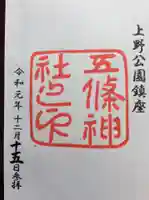 上野公園鎮座
五條神
社之印
令和元年十二月十五日参拝